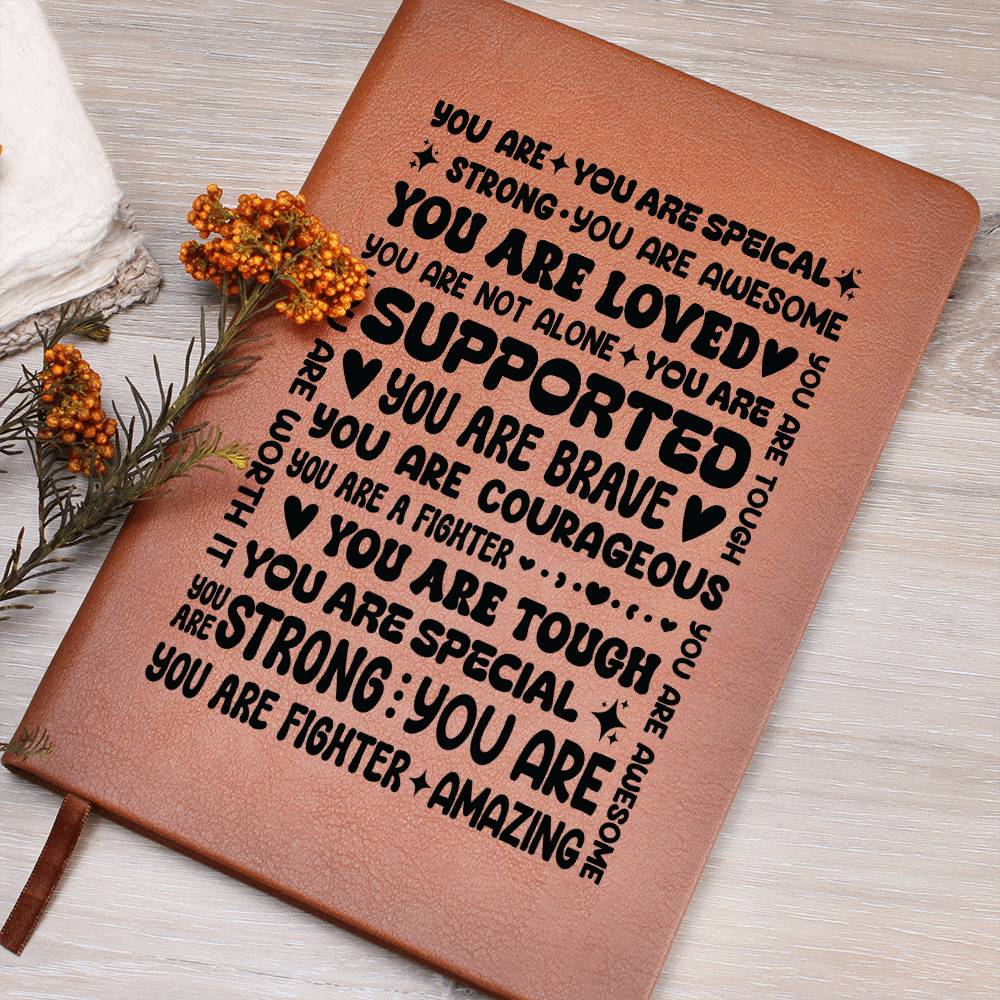 YOU ARE YOU ARE SPEICAL
STRONG · YOU ARE AWESOME
YOU ARE LOVED
YOU ARE NOT ALONE YOU ARE
SUPPORTED
YOU ARE BRAVE
YOU ARE COURAGEOUS
YOU ARE A FIGHTER
YOU ARE TOUGH
YOU ARE SPECIAL
YOU ARE STRONG : YOU ARE
YOU ARE FIGHTER AMAZING
ARE WORTH IT
YOU ARE TOUGH
YOU ARE AWESOME